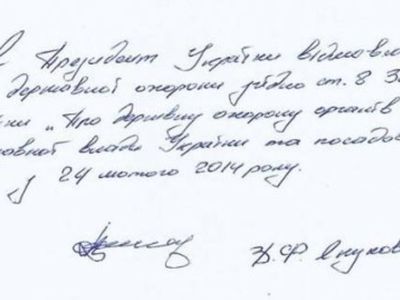 Президент України відмовля
державної охорони згідно ст. 8 З
ни „Про державну охорону органів
овної влади України та посадов
24 лютого 2014 року.
В. Ф. Януков